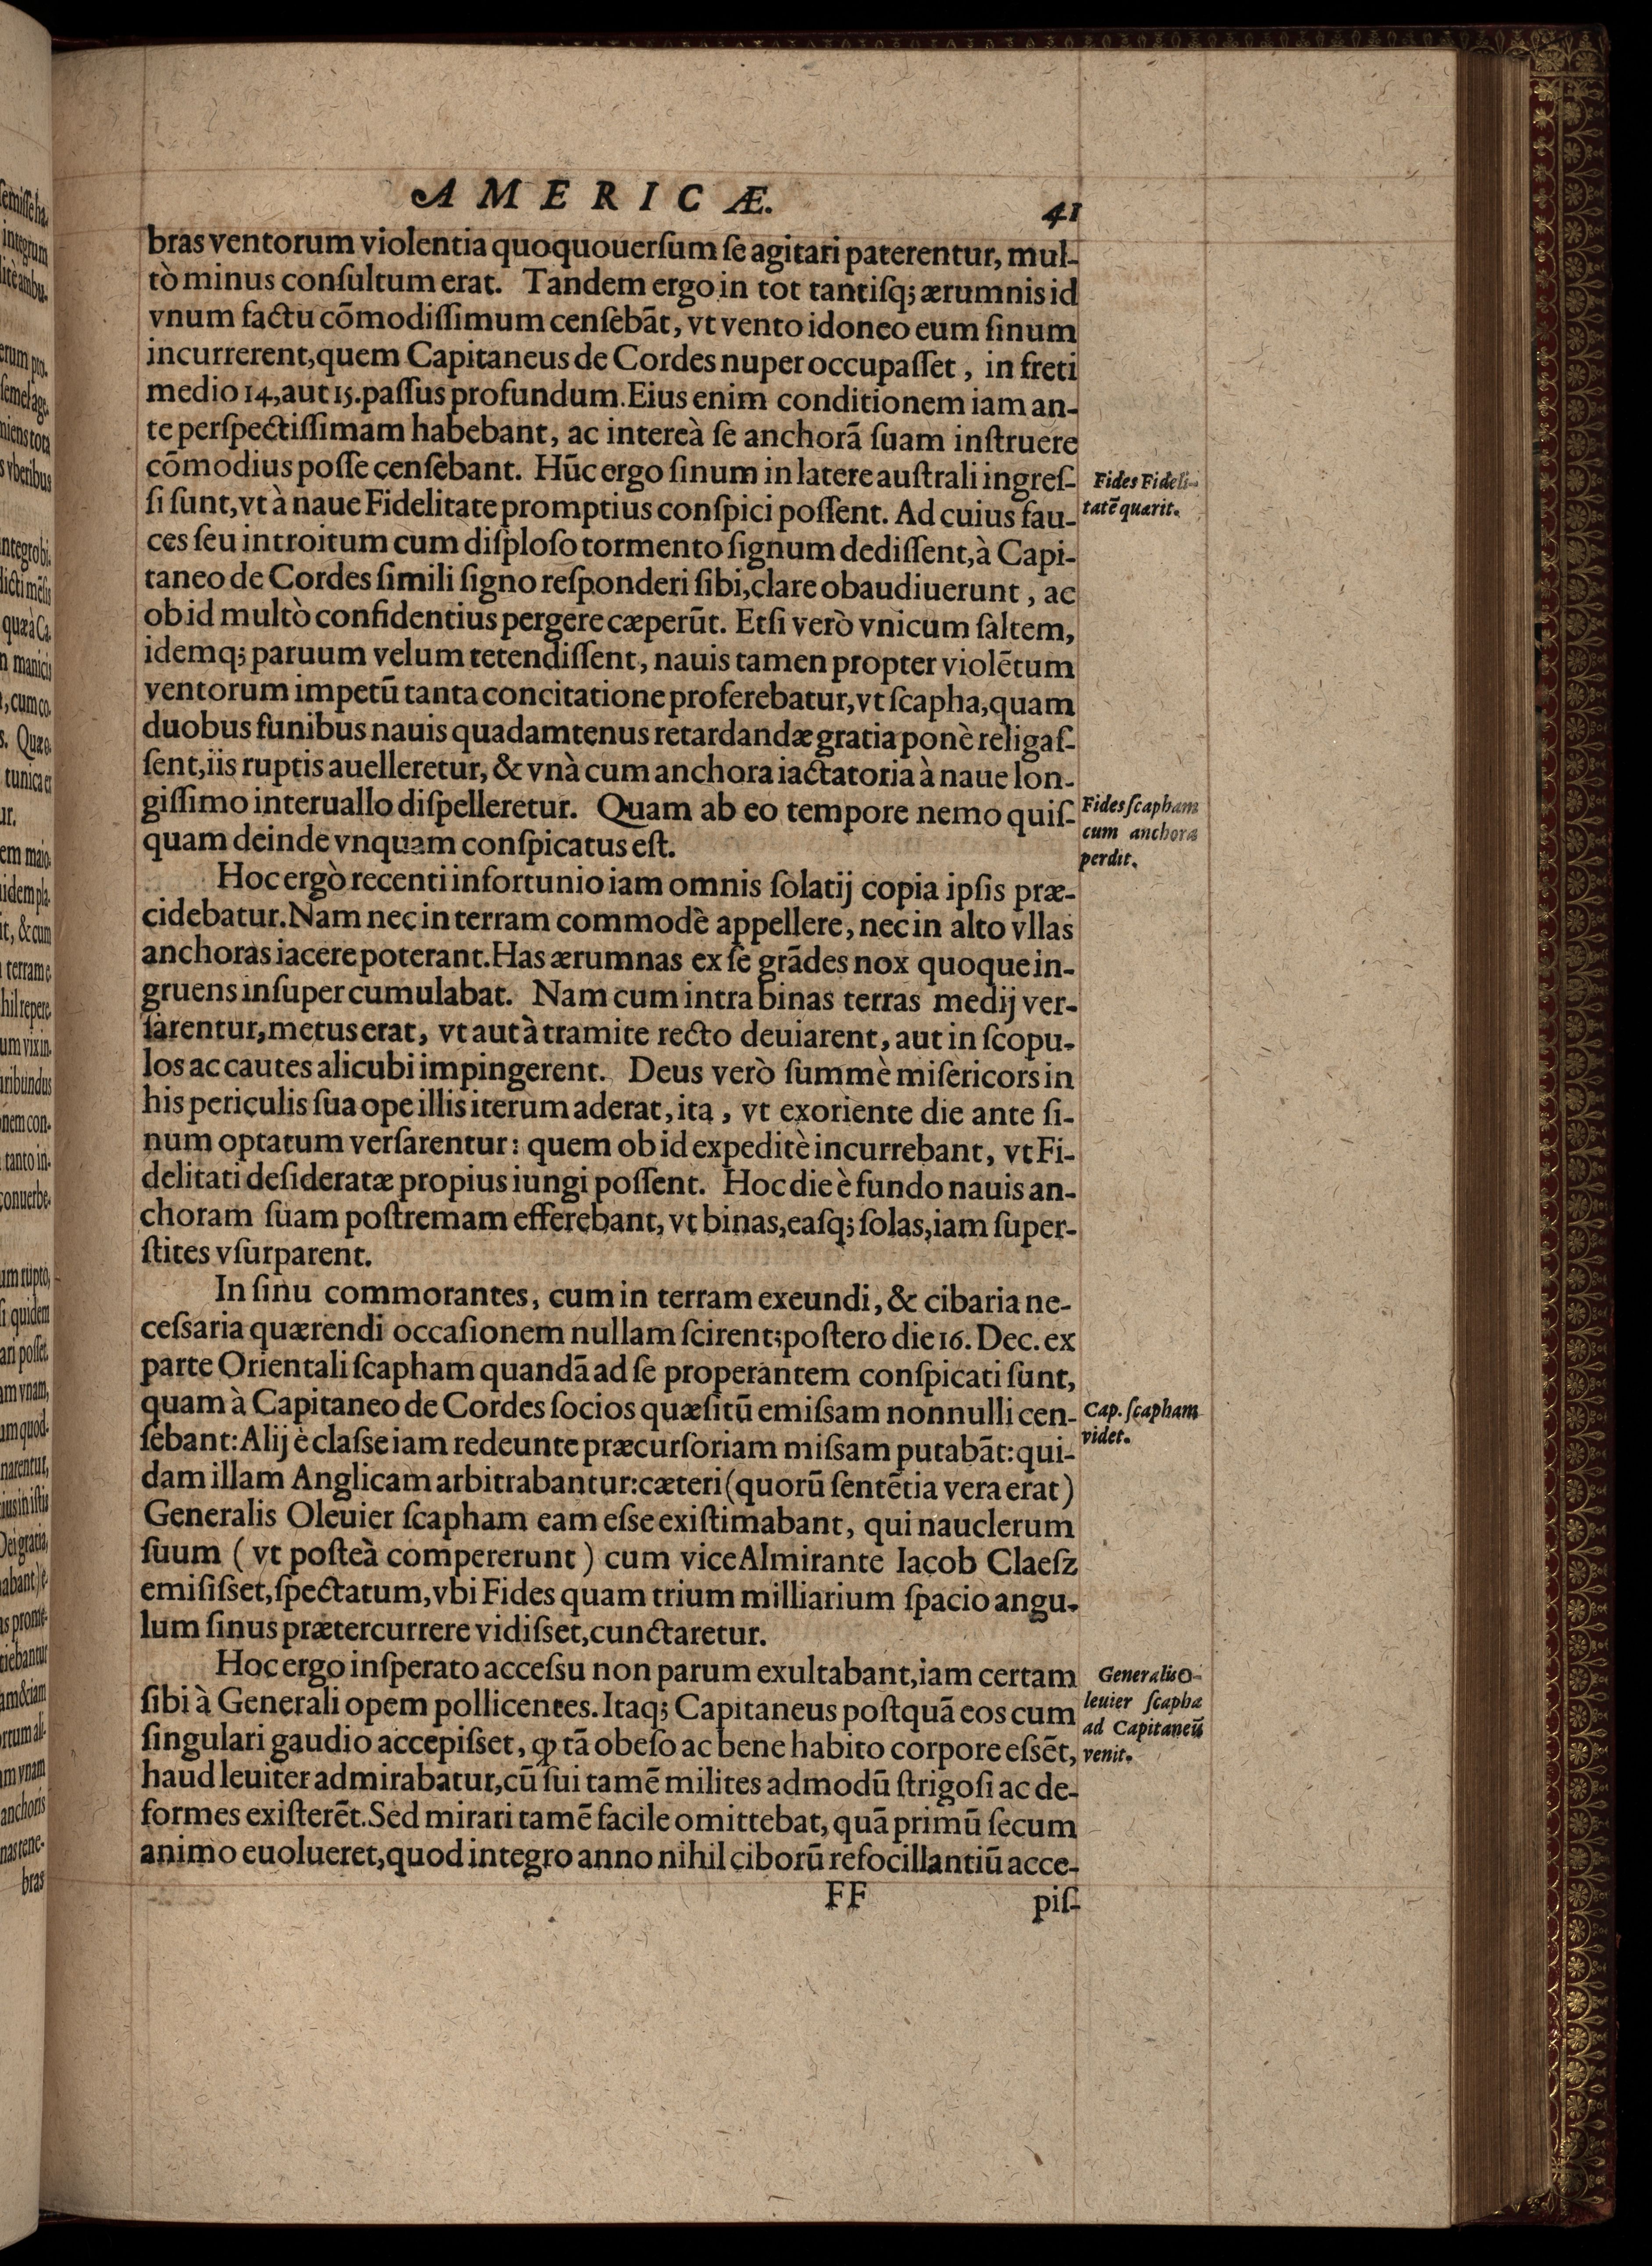 AMERICÆ.
41
bras ventorum violentia quoquouerſum ſe agitari paterentur, mul-
tò minus conſultum erat. Tandem ergo in tot tantiſq; ærumnis id
vnum factu cōmodiſſimum cenſebāt, vt vento idoneo eum ſinum
incurrerent, quem Capitaneus de Cordes nuper occupaſſet, in freti
medio 14, aut 15. paſſus profundum. Eius enim conditionem iam an-
te perſpectiſſimam habebant, ac intereà ſe anchorā ſuam inſtruere
cōmodius poſſe cenſebant. Hūc ergo ſinum in latere auſtrali ingreſ-
ſi ſunt, vt à naue Fidelitate promptius conſpici poſſent. Ad cuius fau-
ces ſeu introitum cum diſploſo tormento ſignum dediſſent, à Capi-
taneo de Cordes ſimili ſigno reſponderi ſibi, clare obaudiuerunt, ac
ob id multò confidentius pergere cæperūt. Etſi verò vnicum ſaltem,
idemq; paruum velum tetendiſſent, nauis tamen propter violētum
ventorum impetū tanta concitatione proferebatur, vt ſcapha, quam
duobus funibus nauis quadamtenus retardandæ gratia ponè religaſ-
ſent, iis ruptis auelleretur, & vnà cum anchora iactatoria à naue lon-
giſſimo interuallo diſpelleretur. Quam ab eo tempore nemo quiſ-
quam deinde vnquam conſpicatus eſt.
Hoc ergò recenti infortunio iam omnis ſolatij copia ipſis præ-
cidebatur. Nam nec in terram commodè appellere, nec in alto vllas
anchoras iacere poterant. Has ærumnas ex ſe grādes nox quoque in-
gruens inſuper cumulabat. Nam cum intra binas terras medij ver-
ſarentur, metus erat, vt aut à tramite recto deuiarent, aut in ſcopu-
los ac cautes alicubi impingerent. Deus verò ſummè miſericors in
his periculis ſua ope illis iterum aderat, ita, vt exoriente die ante ſi-
num optatum verſarentur: quem ob id expeditè incurrebant, vt Fi-
delitati deſideratæ propius iungi poſſent. Hoc die è fundo nauis an-
choram ſuam poſtremam efferebant, vt binas, eaſq; ſolas, iam ſuper-
ſtites vſurparent.
In ſinu commorantes, cum in terram exeundi, & cibaria ne-
ceſsaria quærendi occaſionem nullam ſcirent; poſtero die 16. Dec. ex
parte Orientali ſcapham quandā ad ſe properantem conſpicati ſunt,
quam à Capitaneo de Cordes ſocios quæſitū emiſsam nonnulli cen-
ſebant: Alij è claſse iam redeunte præcurſoriam miſsam putabāt: qui-
dam illam Anglicam arbitrabantur: cæteri (quorū ſentētia vera erat)
Generalis Oleuier ſcapham eam eſse exiſtimabant, qui nauclerum
ſuum (vt poſteà compererunt) cum vice Almirante Iacob Claeſz
emiſiſset, ſpectatum, vbi Fides quam trium milliarium ſpacio angu-
lum ſinus prætercurrere vidiſset, cunctaretur.
Hoc ergo inſperato acceſsu non parum exultabant, iam certam
ſibi à Generali opem pollicentes. Itaq; Capitaneus poſtquā eos cum
ſingulari gaudio accepiſset, ꝙ tā obeſo ac bene habito corpore eſsēt,
haud leuiter admirabatur, cū ſui tamē milites admodū ſtrigoſi ac de-
formes exiſterēt. Sed mirari tamē facile omittebat, quā primū ſecum
animo euolueret, quod integro anno nihil ciborū refocillantiū acce-
FF
piſ-
Fides Fideli-
tatē quærit.
Fides ſcapham
cum anchora
perdit.
Cap. ſcapham
videt.
Generalis O-
leuier ſcapha
ad Capitaneū
venit.